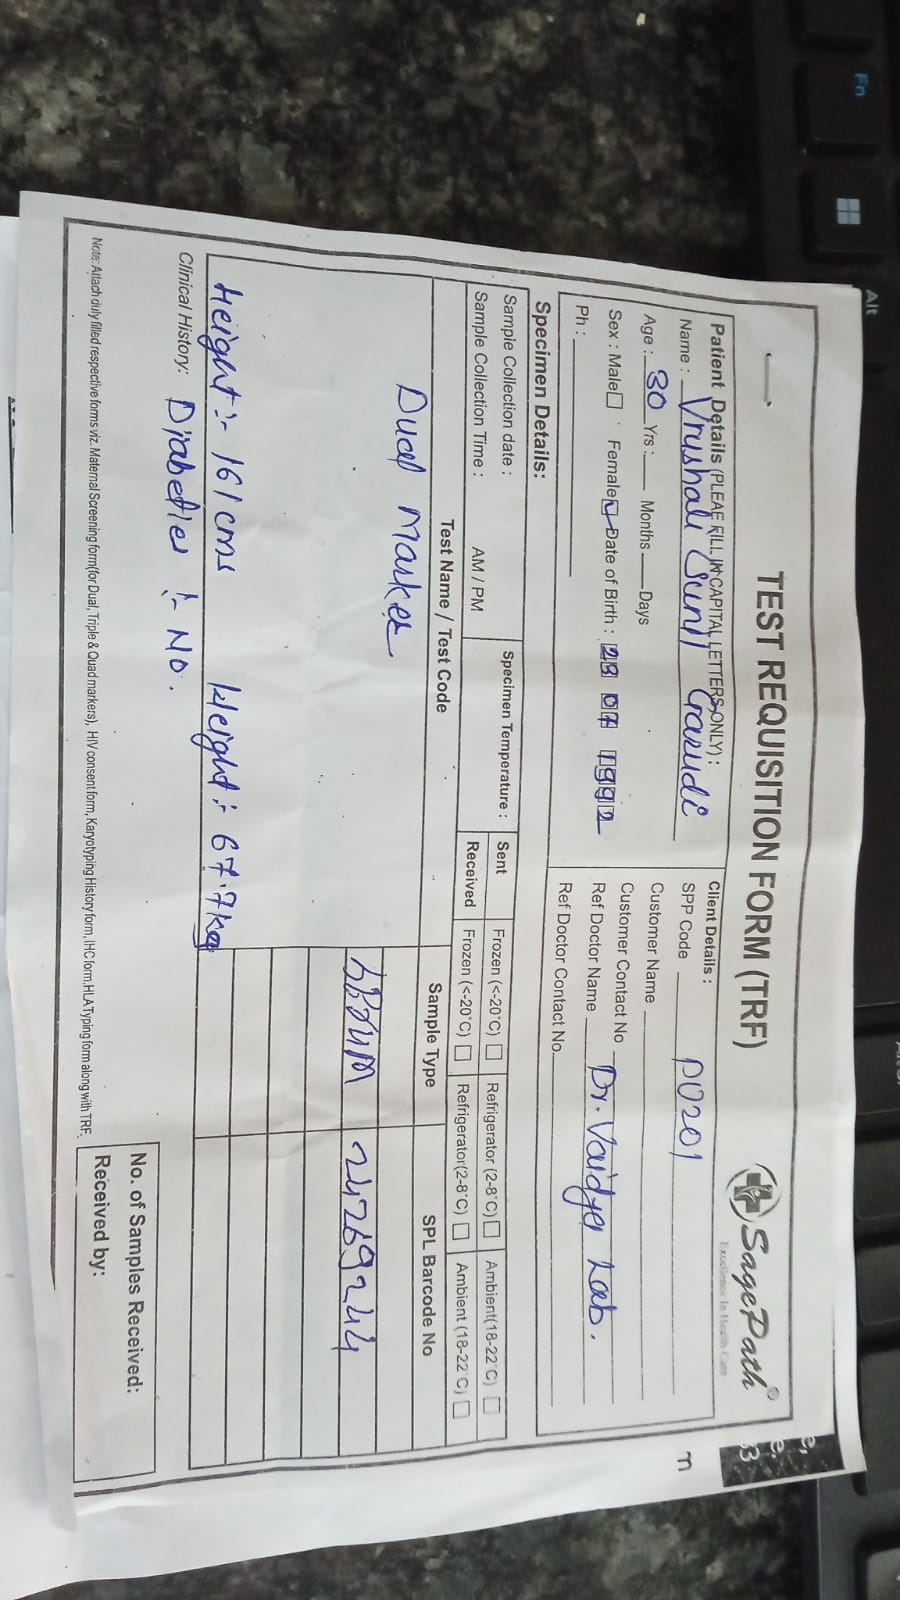 TEST REQUISITION FORM (TRF)
SagePath®
Excellence In Health Care
Patient Details (PLEAE FILL IN CAPITAL LETTERS ONLY) :
Name : Vrushali Sunil Garudi
Age : 30 Yrs : Months Days
Sex : Male Female Date of Birth : 23 07 1992
Ph :
Client Details :
SPP Code P0201
Customer Name
Customer Contact No
Ref Doctor Name Dr. Vaidya Lab.
Ref Doctor Contact No.
Specimen Details:
Sample Collection date :
Sample Collection Time : AM / PM
Specimen Temperature :
Sent Frozen (<-20°C) Refrigerator (2-8°C) Ambient(18-22°C)
Received Frozen (<-20°C) Refrigerator(2-8°C) Ambient (18-22°C)
Test Name / Test Code Sample Type SPL Barcode No
Dual Marker
24269244
Height :- 161 cms Height :- 67.7kg
Clinical History: Diabeties :- No.
Note: Attach duly filled respective forms viz. Maternal Screening form(for Dual, Triple & Quad markers), HIV consent form, Karyotyping History form, IHC form,HLA Typing form along with TRF.
No. of Samples Received:
Received by:
Alt
Fn